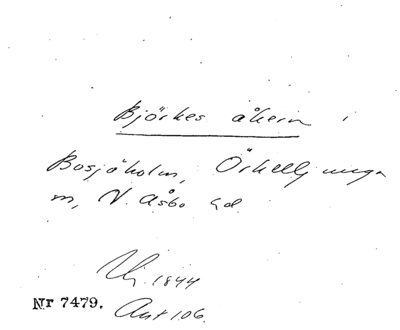 Björkes åkern i
Bosjöholm, Örkelljunga
sn, N. Åsbo hd
1844
Nr 7479. Akt 106.